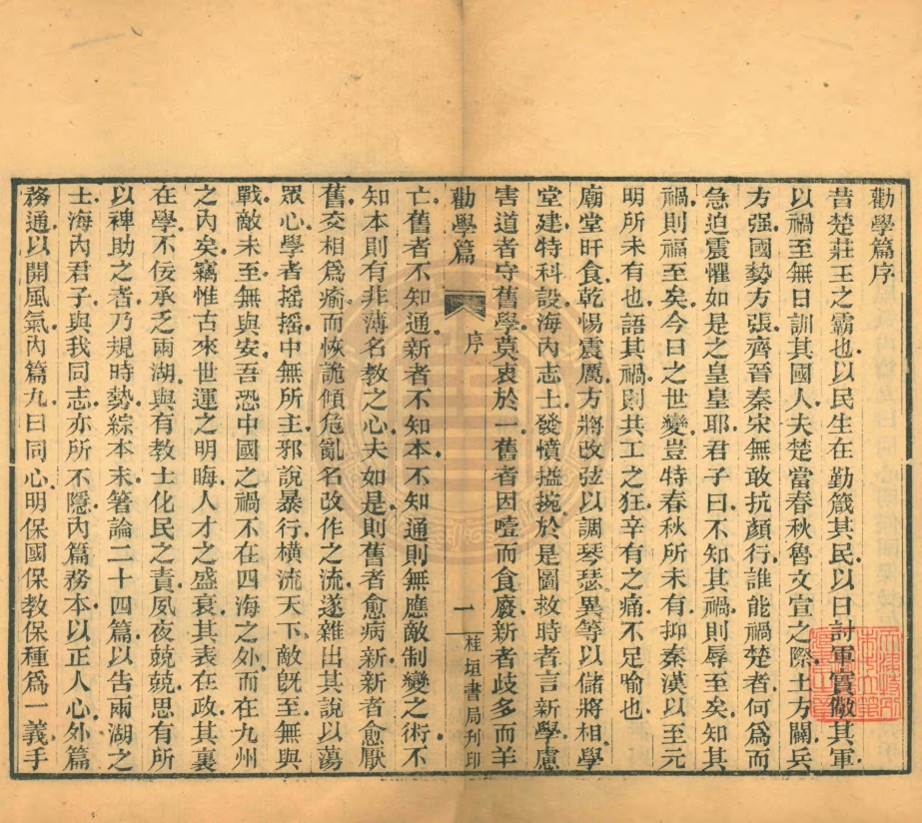 勸學篇序
昔楚莊王之霸也以民生在勤箴其民以日討軍實儆其軍
以禍至無日訓其國人夫楚當春秋魯文宣之際土方闢兵
方强國勢方張齊晉秦宋無敢抗顏行誰能禍楚者何爲而
急迫震懼如是之皇皇耶君子曰不知其禍則辱至矣知其
禍則福至矣今日之世變豈特春秋所未有抑秦漢以至元
明所未有也語其禍則共工之狂辛有之痛不足喻也
廟堂旰食乾惕震厲方將改弦以調琴瑟異等以儲將相學
堂建特科設海內志士發憤搤捥於是圖救時者言新學慮
害道者守舊學莫衷於一舊者因噎而食廢新者歧多而羊
勸學篇 序 一 桂垣書局刊印
亡舊者不知通新者不知本不知通則無應敵制變之術不
知本則有非薄名教之心夫如是則舊者愈病新新者愈厭
舊交相爲瘉而恢詭傾危亂名改作之流遂雜出其說以蕩
眾心學者搖搖中無所主邪說暴行橫流天下敵旣至無與
戰敵未至無與安吾恐中國之禍不在四海之外而在九州
之內矣竊惟古來世運之明晦人才之盛衰其表在政其裏
在學不佞承乏兩湖與有教士化民之責夙夜兢兢思有所
以裨助之者乃規時勢綜本末箸論二十四篇以告兩湖之
士海內君子與我同志亦所不隱內篇務本以正人心外篇
務通以開風氣內篇九曰同心明保國保教保種爲一義手